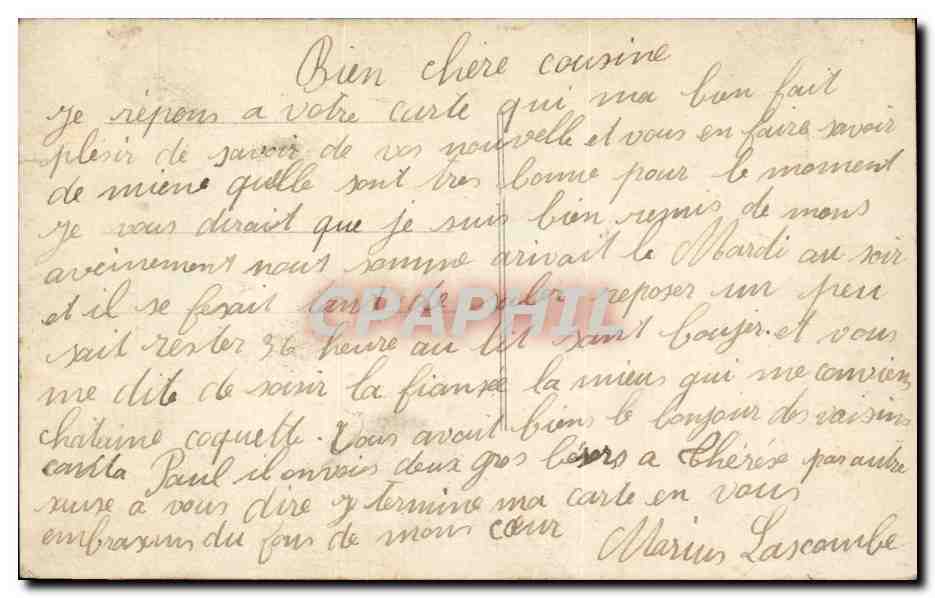 Bien chere cousine
Je répons a votre carte qui ma bien fait
plésir de savoir de vos nouvelle et vous en faire savoir
de miene quelle sont tres bonne pour le moment
Je vous dirait que je suis bien remis de mons
aveinement nous somme arivait le Mardi au soir
et il se fesait tant de reposer un peu
sait rester 36 heure au lit sant boujer. et vous
me dite de saisir la fiansée la mieus qui me conviens
chataine coquette. Vous avait biens le bonjour des voisins
Paul il envois deux gros bésers a Thérèse par autre
a vous dire je termine ma carte en vous
embrasens du fons de mons cœur
Marius Lascombe
CPAPHIL